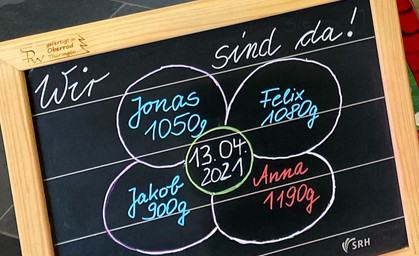 gefertigt in
Oberrod
Thüringen
Wir sind da!
Jonas
1050g
Felix
1080g
13.04.
2021
Jakob
900g
Anna
1190g
SRH